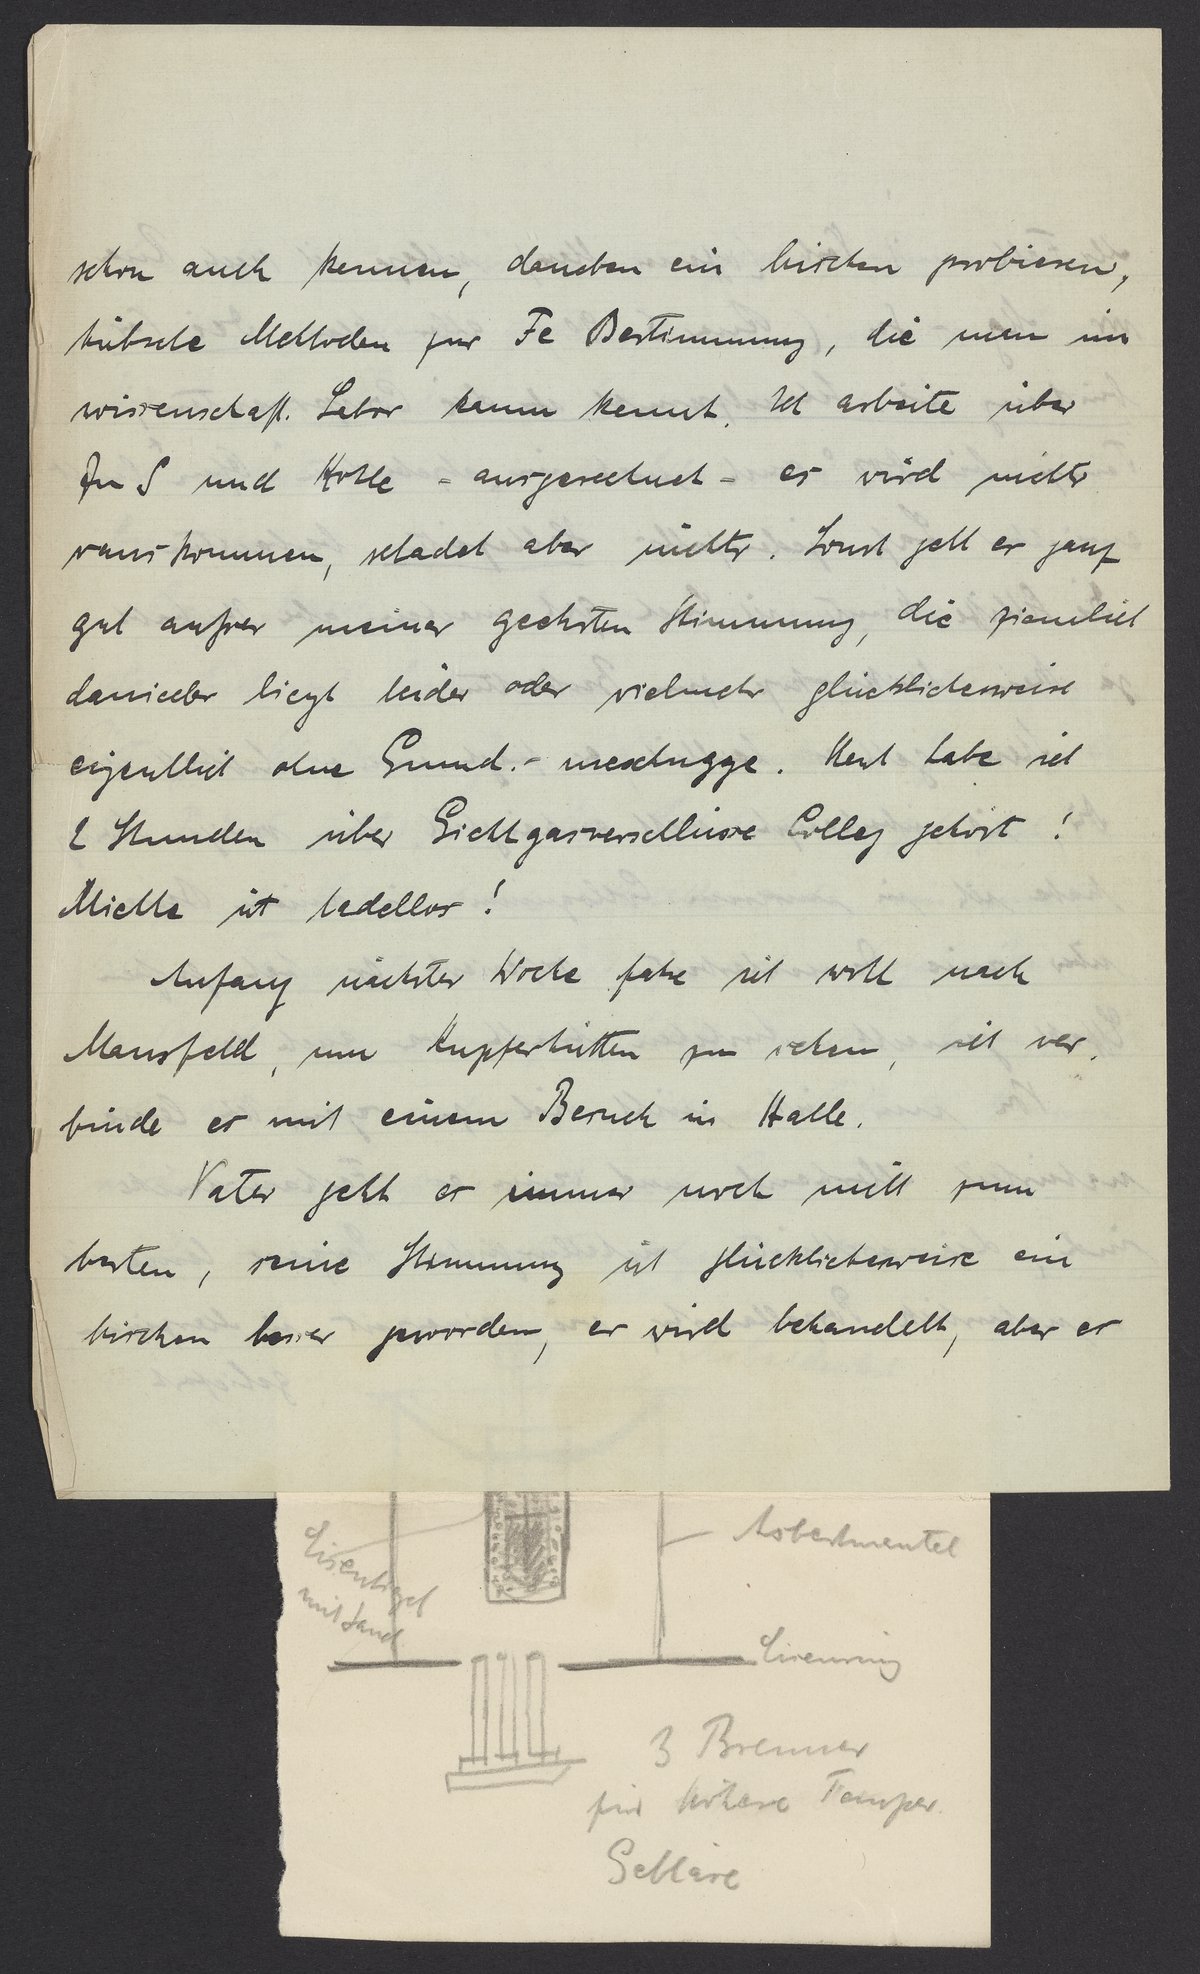 schon auch kennen, daneben ein bischen probieren,
hübsche Methoden zur Fe Bestimmung, die man im
wissenschaftl. Labor kaum kennt. Ich arbeite über
ZnS und Kohle - ausgerechnet - es wird nichts
rauskommen, schadet aber nichts. Sonst geht es ganz
gut außer meiner geehrten Stimmung, die ziemlich
danieder liegt leider oder vielmehr glücklicherweise
eigentlich ohne Grund. - meschugge. Heut habe ich
2 Stunden über Gichtgasverschlüsse Colleg gehört!
Miethe ist tadellos!
Anfang nächster Woche fahre ich wohl nach
Mansfeld, um Kupferhütten zu sehen, ich ver-
binde es mit einem Besuch in Halle.
Vater geht es immer noch nicht zum
besten, seine Stimmung ist glücklicherweise ein
bischen besser geworden, er wird behandelt, aber es
Eisentiegel
mit Sand
Asbestmantel
Eisenring
3 Brenner
für höhere Temper.
Gebläse